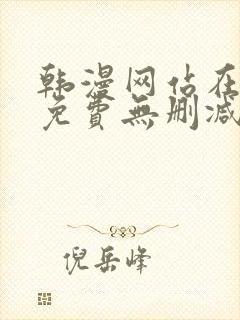 韩漫网站在
免費無删减
倪岳峰